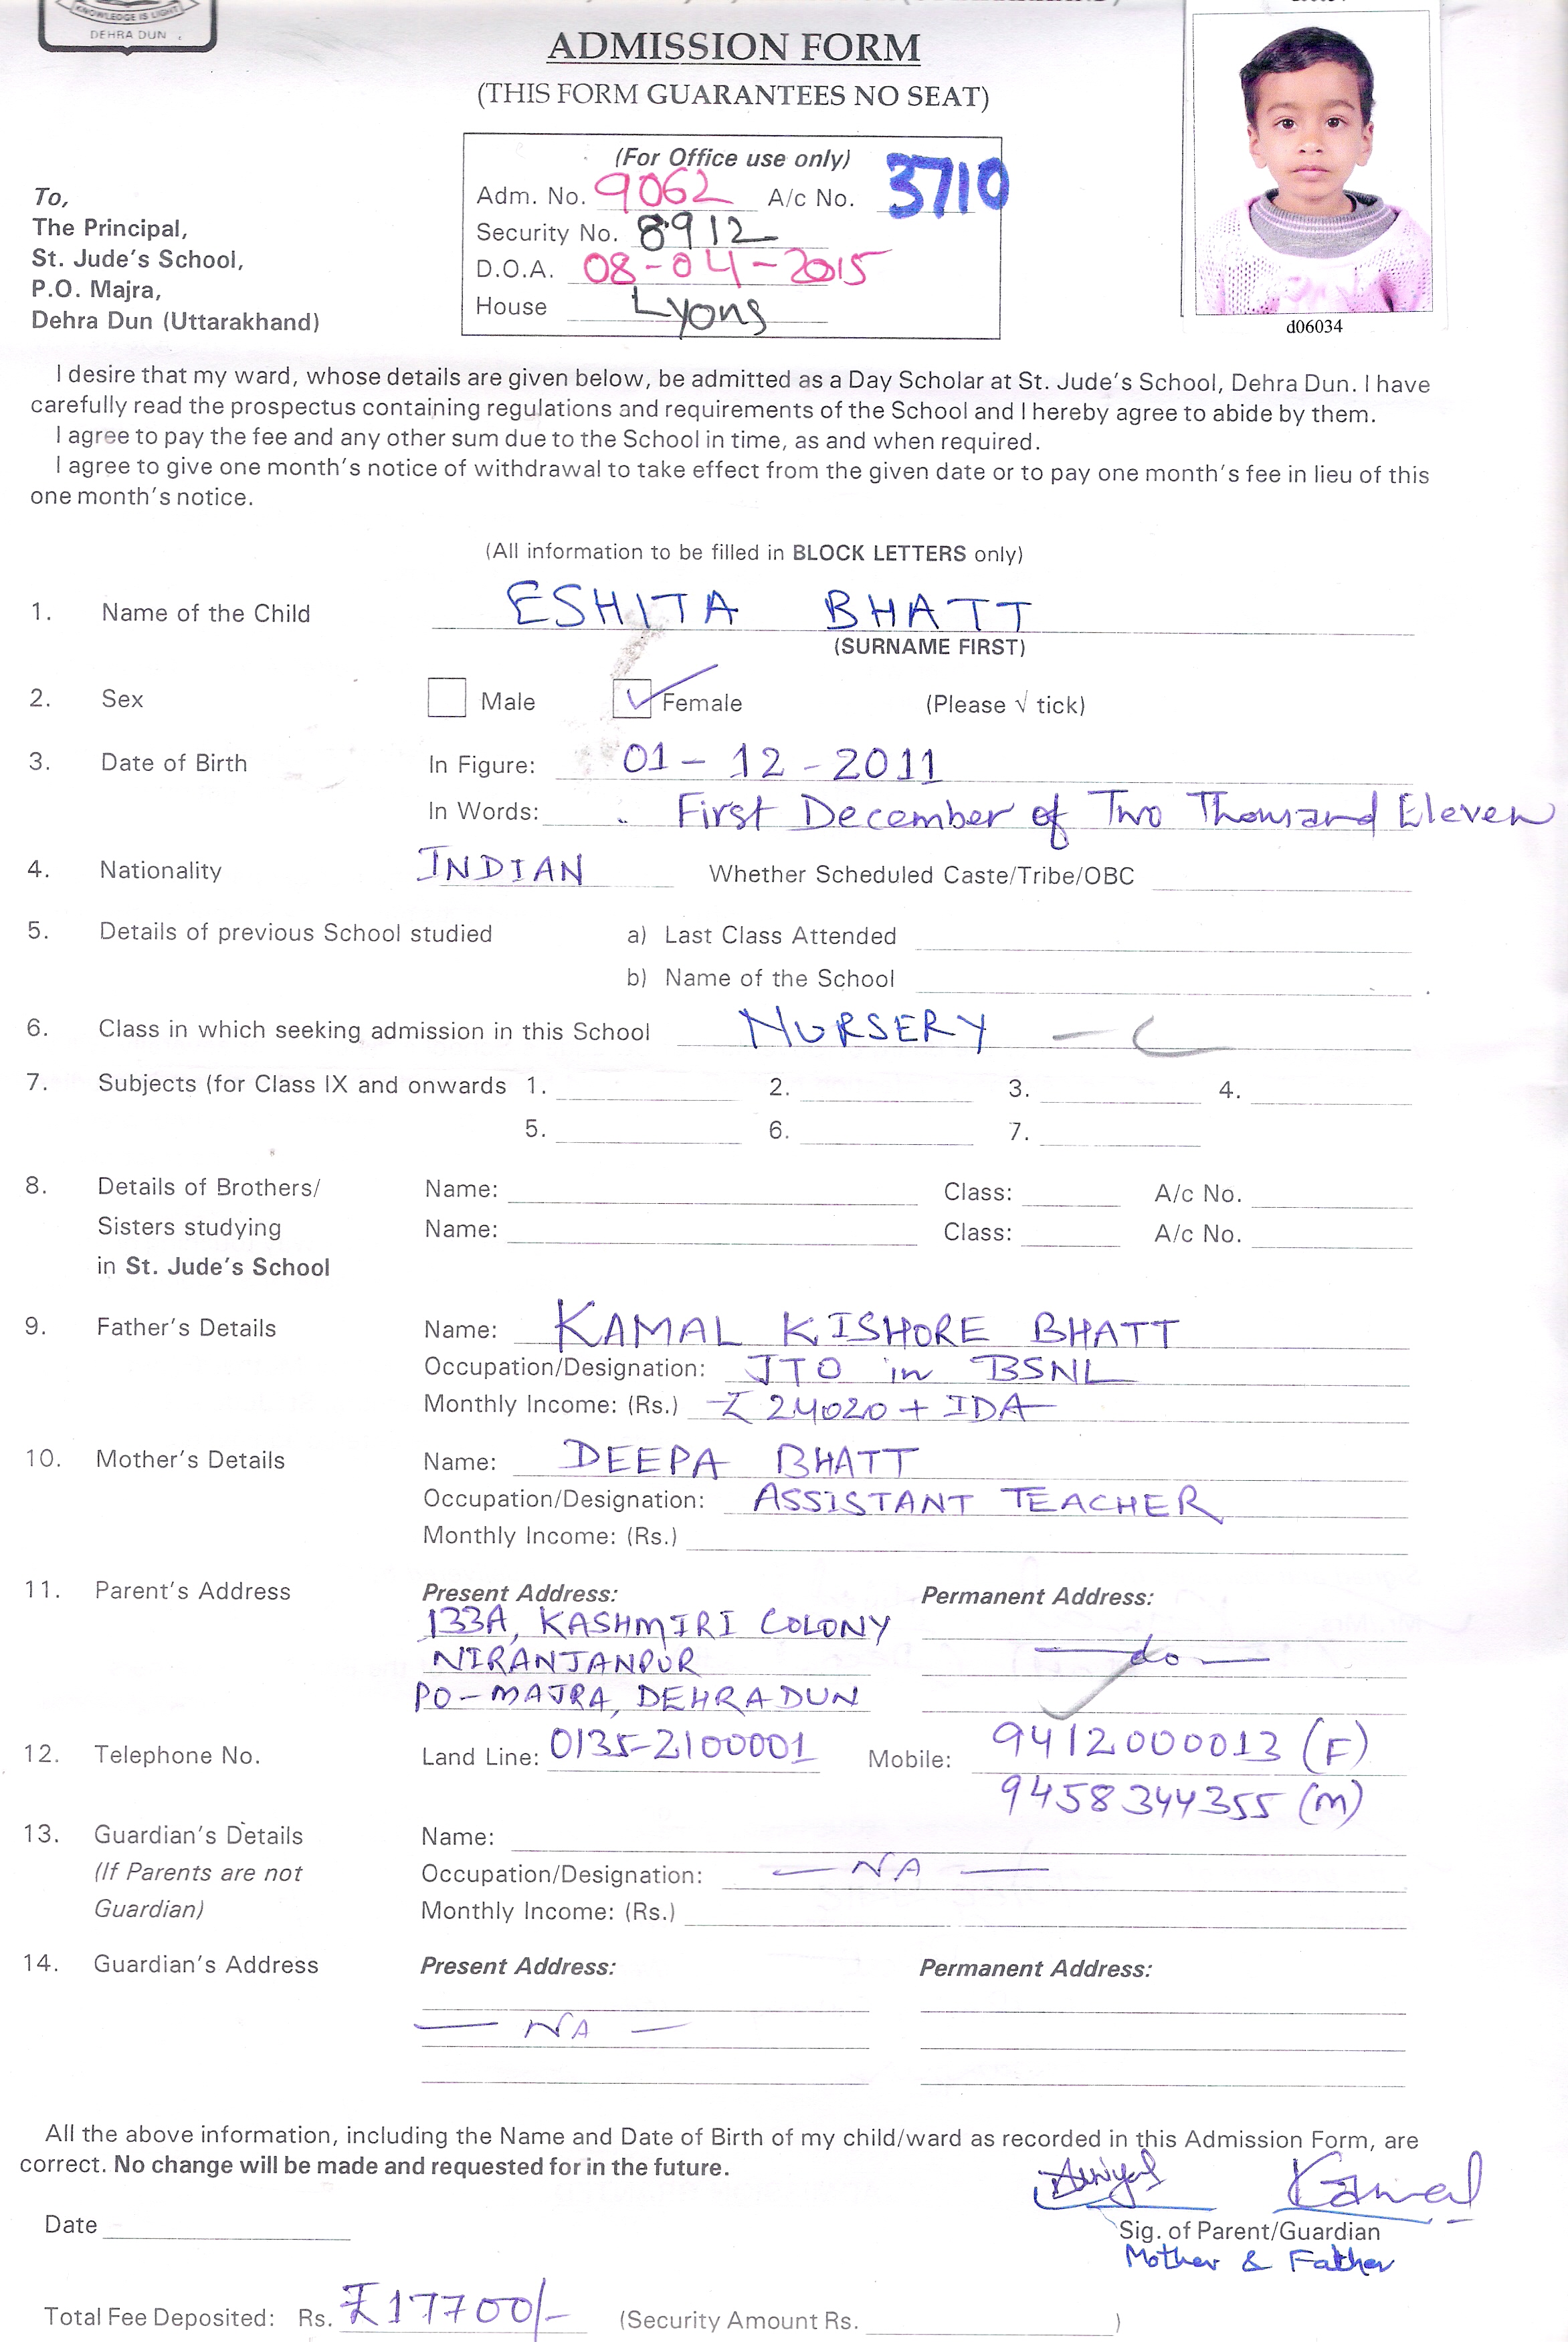 KNOWLEDGE IS LIGHT
DEHRA DUN
ADMISSION FORM
(THIS FORM GUARANTEES NO SEAT)
(For Office use only)
Adm. No. 9062 A/c No. 3710
Security No. 8912
D.O.A. 08-04-2015
House Lyons
d06034
To,
The Principal,
St. Jude's School,
P.O. Majra,
Dehra Dun (Uttarakhand)
I desire that my ward, whose details are given below, be admitted as a Day Scholar at St. Jude's School, Dehra Dun. I have
carefully read the prospectus containing regulations and requirements of the School and I hereby agree to abide by them.
I agree to pay the fee and any other sum due to the School in time, as and when required.
I agree to give one month's notice of withdrawal to take effect from the given date or to pay one month's fee in lieu of this
one month's notice.
(All information to be filled in BLOCK LETTERS only)
1. Name of the Child ESHITA BHATT
(SURNAME FIRST)
2. Sex Male ✓ Female (Please √ tick)
3. Date of Birth In Figure: 01-12-2011
In Words: First December of Two Thousand Eleven
4. Nationality INDIAN Whether Scheduled Caste/Tribe/OBC
5. Details of previous School studied a) Last Class Attended
b) Name of the School
6. Class in which seeking admission in this School NURSERY - C
7. Subjects (for Class IX and onwards 1. 2. 3. 4.
5. 6. 7.
8. Details of Brothers/ Name: Class: A/c No.
Sisters studying Name: Class: A/c No.
in St. Jude's School
9. Father's Details Name: KAMAL KISHORE BHATT
Occupation/Designation: JTO in BSNL
Monthly Income: (Rs.) ₹ 24020 + IDA
10. Mother's Details Name: DEEPA BHATT
Occupation/Designation: ASSISTANT TEACHER
Monthly Income: (Rs.)
11. Parent's Address Present Address: Permanent Address:
133A, KASHMIRI COLONY
NIRANJANPUR — do —
PO-MAJRA, DEHRADUN
12. Telephone No. Land Line: 0135-2100001 Mobile: 9412000013 (F)
9458344355 (M)
13. Guardian's Details Name:
(If Parents are not Occupation/Designation: — NA —
Guardian) Monthly Income: (Rs.)
14. Guardian's Address Present Address: Permanent Address:
— NA —
All the above information, including the Name and Date of Birth of my child/ward as recorded in this Admission Form, are
correct. No change will be made and requested for in the future.
Kamal
Date Sig. of Parent/Guardian
Mother & Father
Total Fee Deposited: Rs. ₹17700/- (Security Amount Rs. )